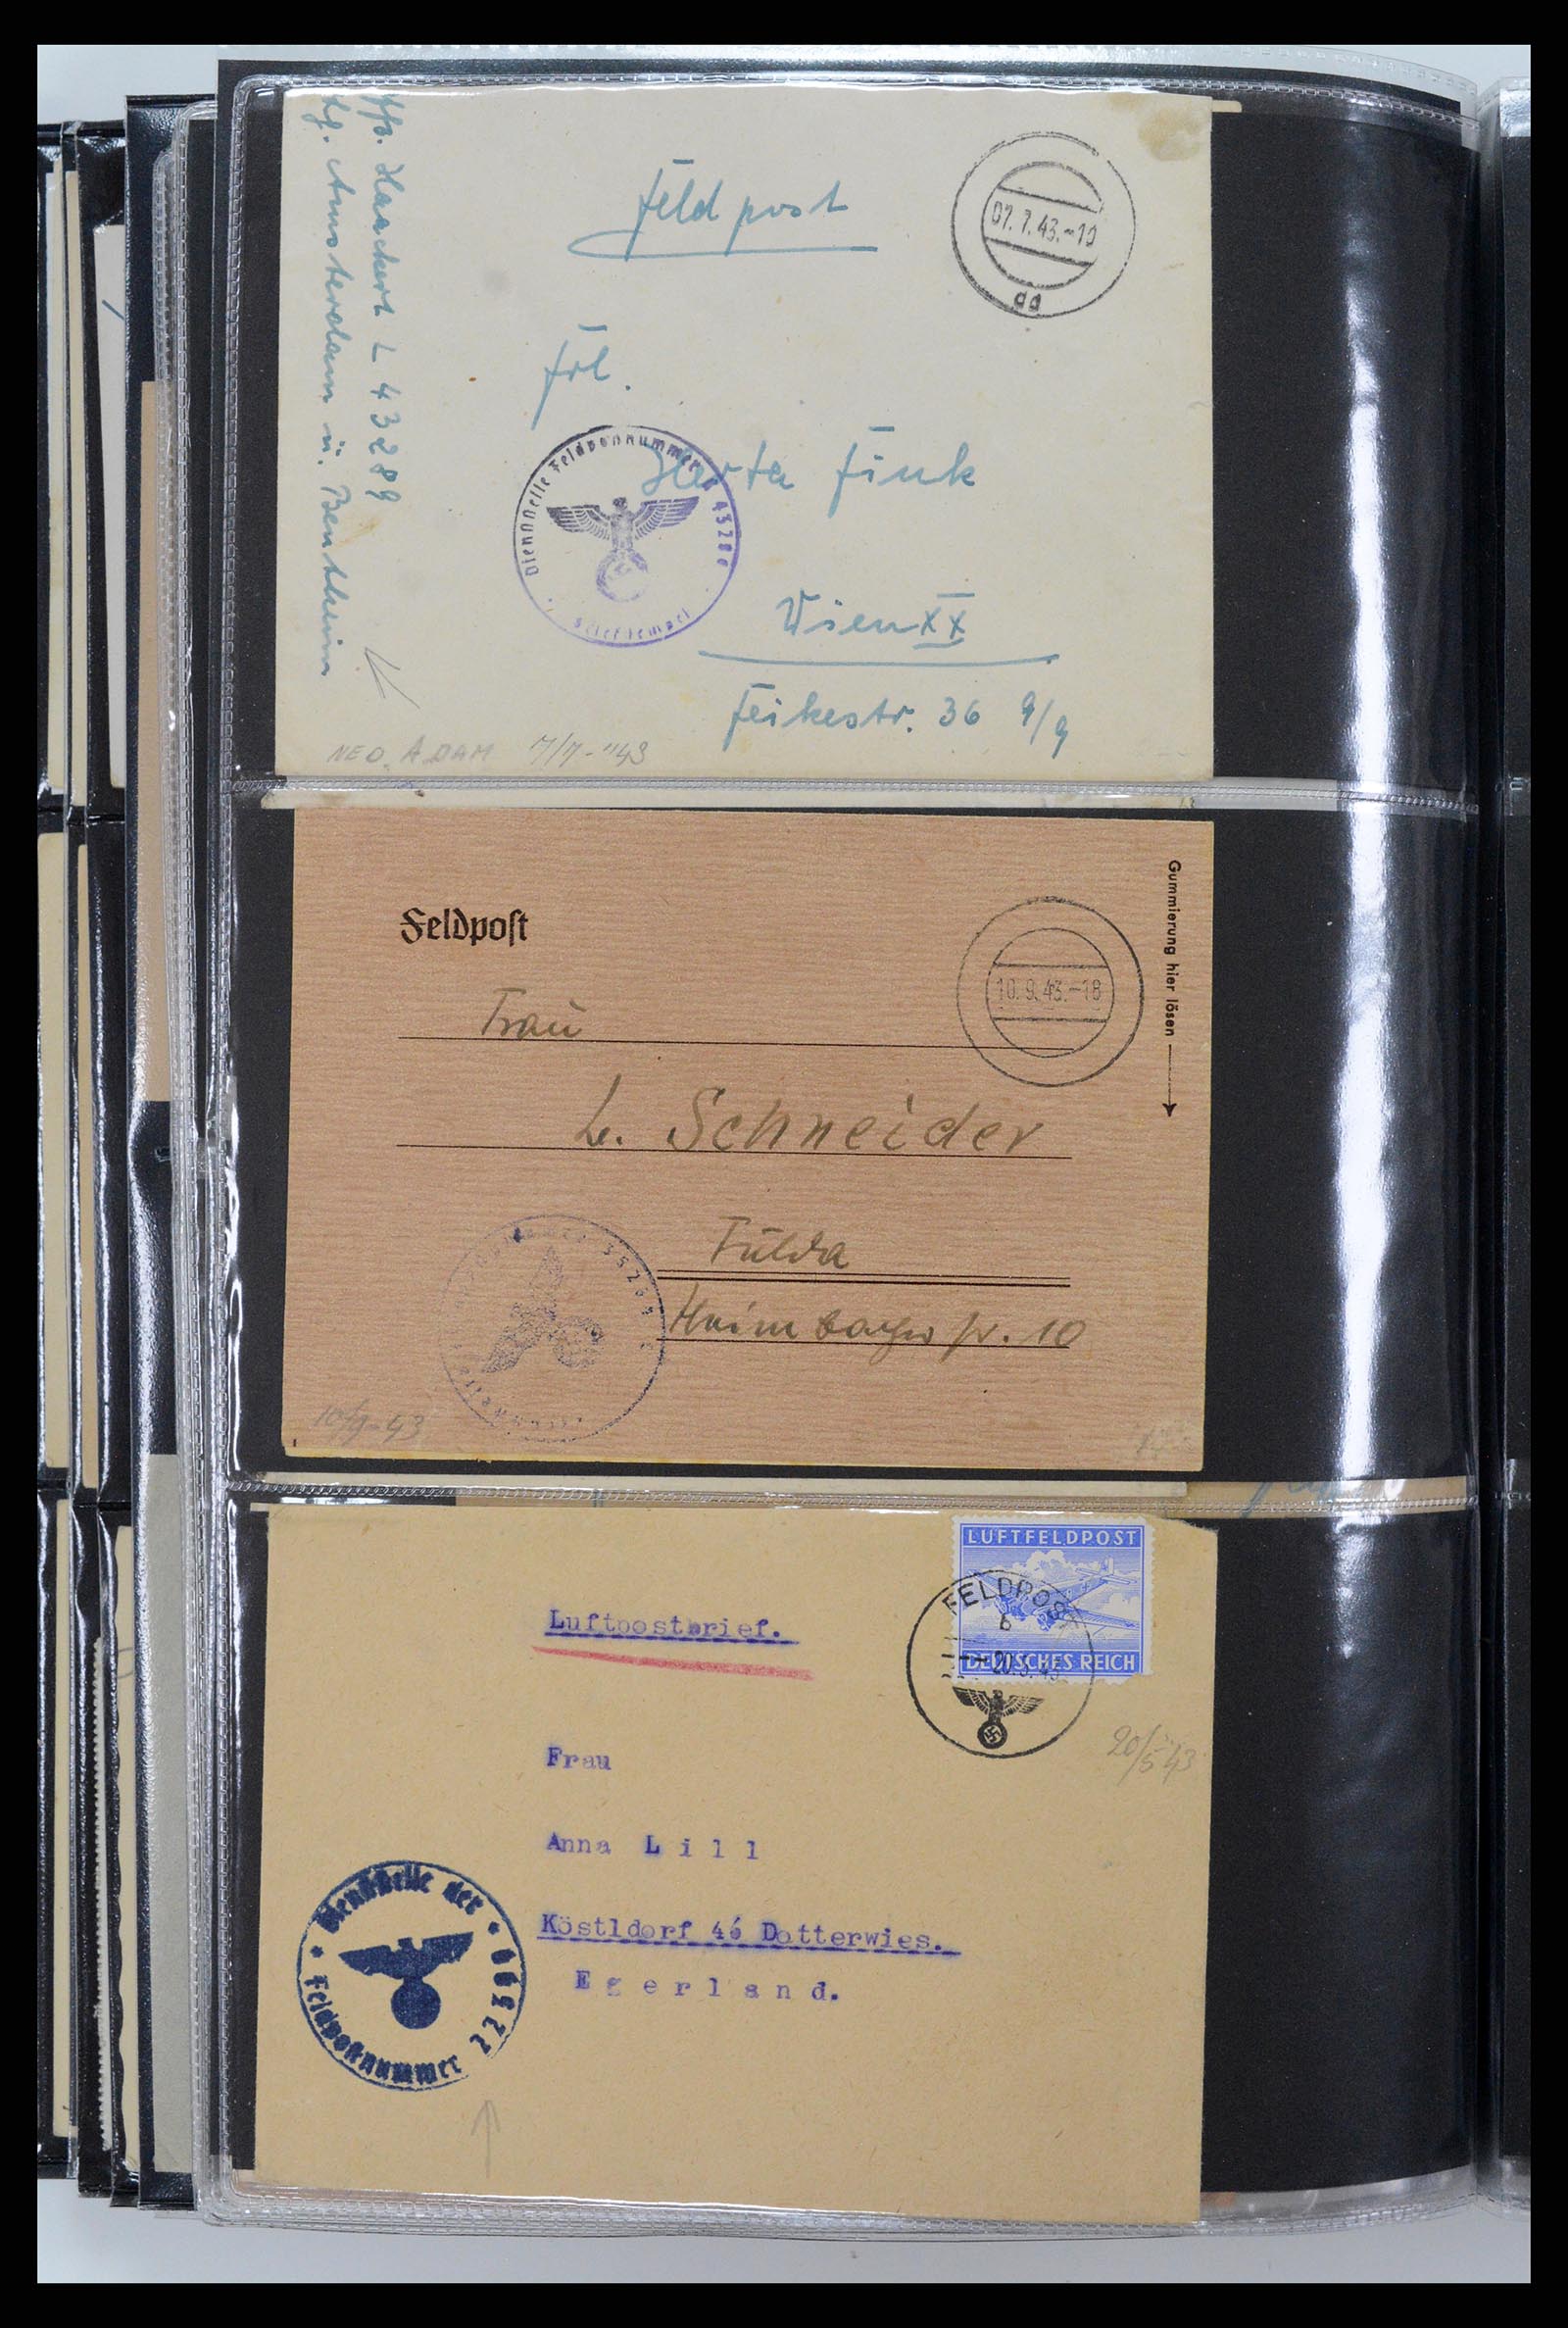 Haackert L 43289
Lg. Amsterdam ü. Bentheim
Feldpost
07.7.43.-10
aa
Frl.
Herta Fink
Wien XX
Feikestr. 36 9/9
Dienststelle Feldpostnummer
Briefstempel
NED. ADAM 7/7-"43
Feldpost
10.9.43.-18
Gummierung hier lösen
Frau
L. Schneider
Fulda
10
10/9-43
LUFTFELDPOST
DEUTSCHES REICH
FELDPOST
b
20.5.43
Luftpostbrief.
20/5 43
Frau
Anna Lill
Köstldorf 46 Dotterwies.
Egerland.
Dienststelle der
Feldpostnummer 22399